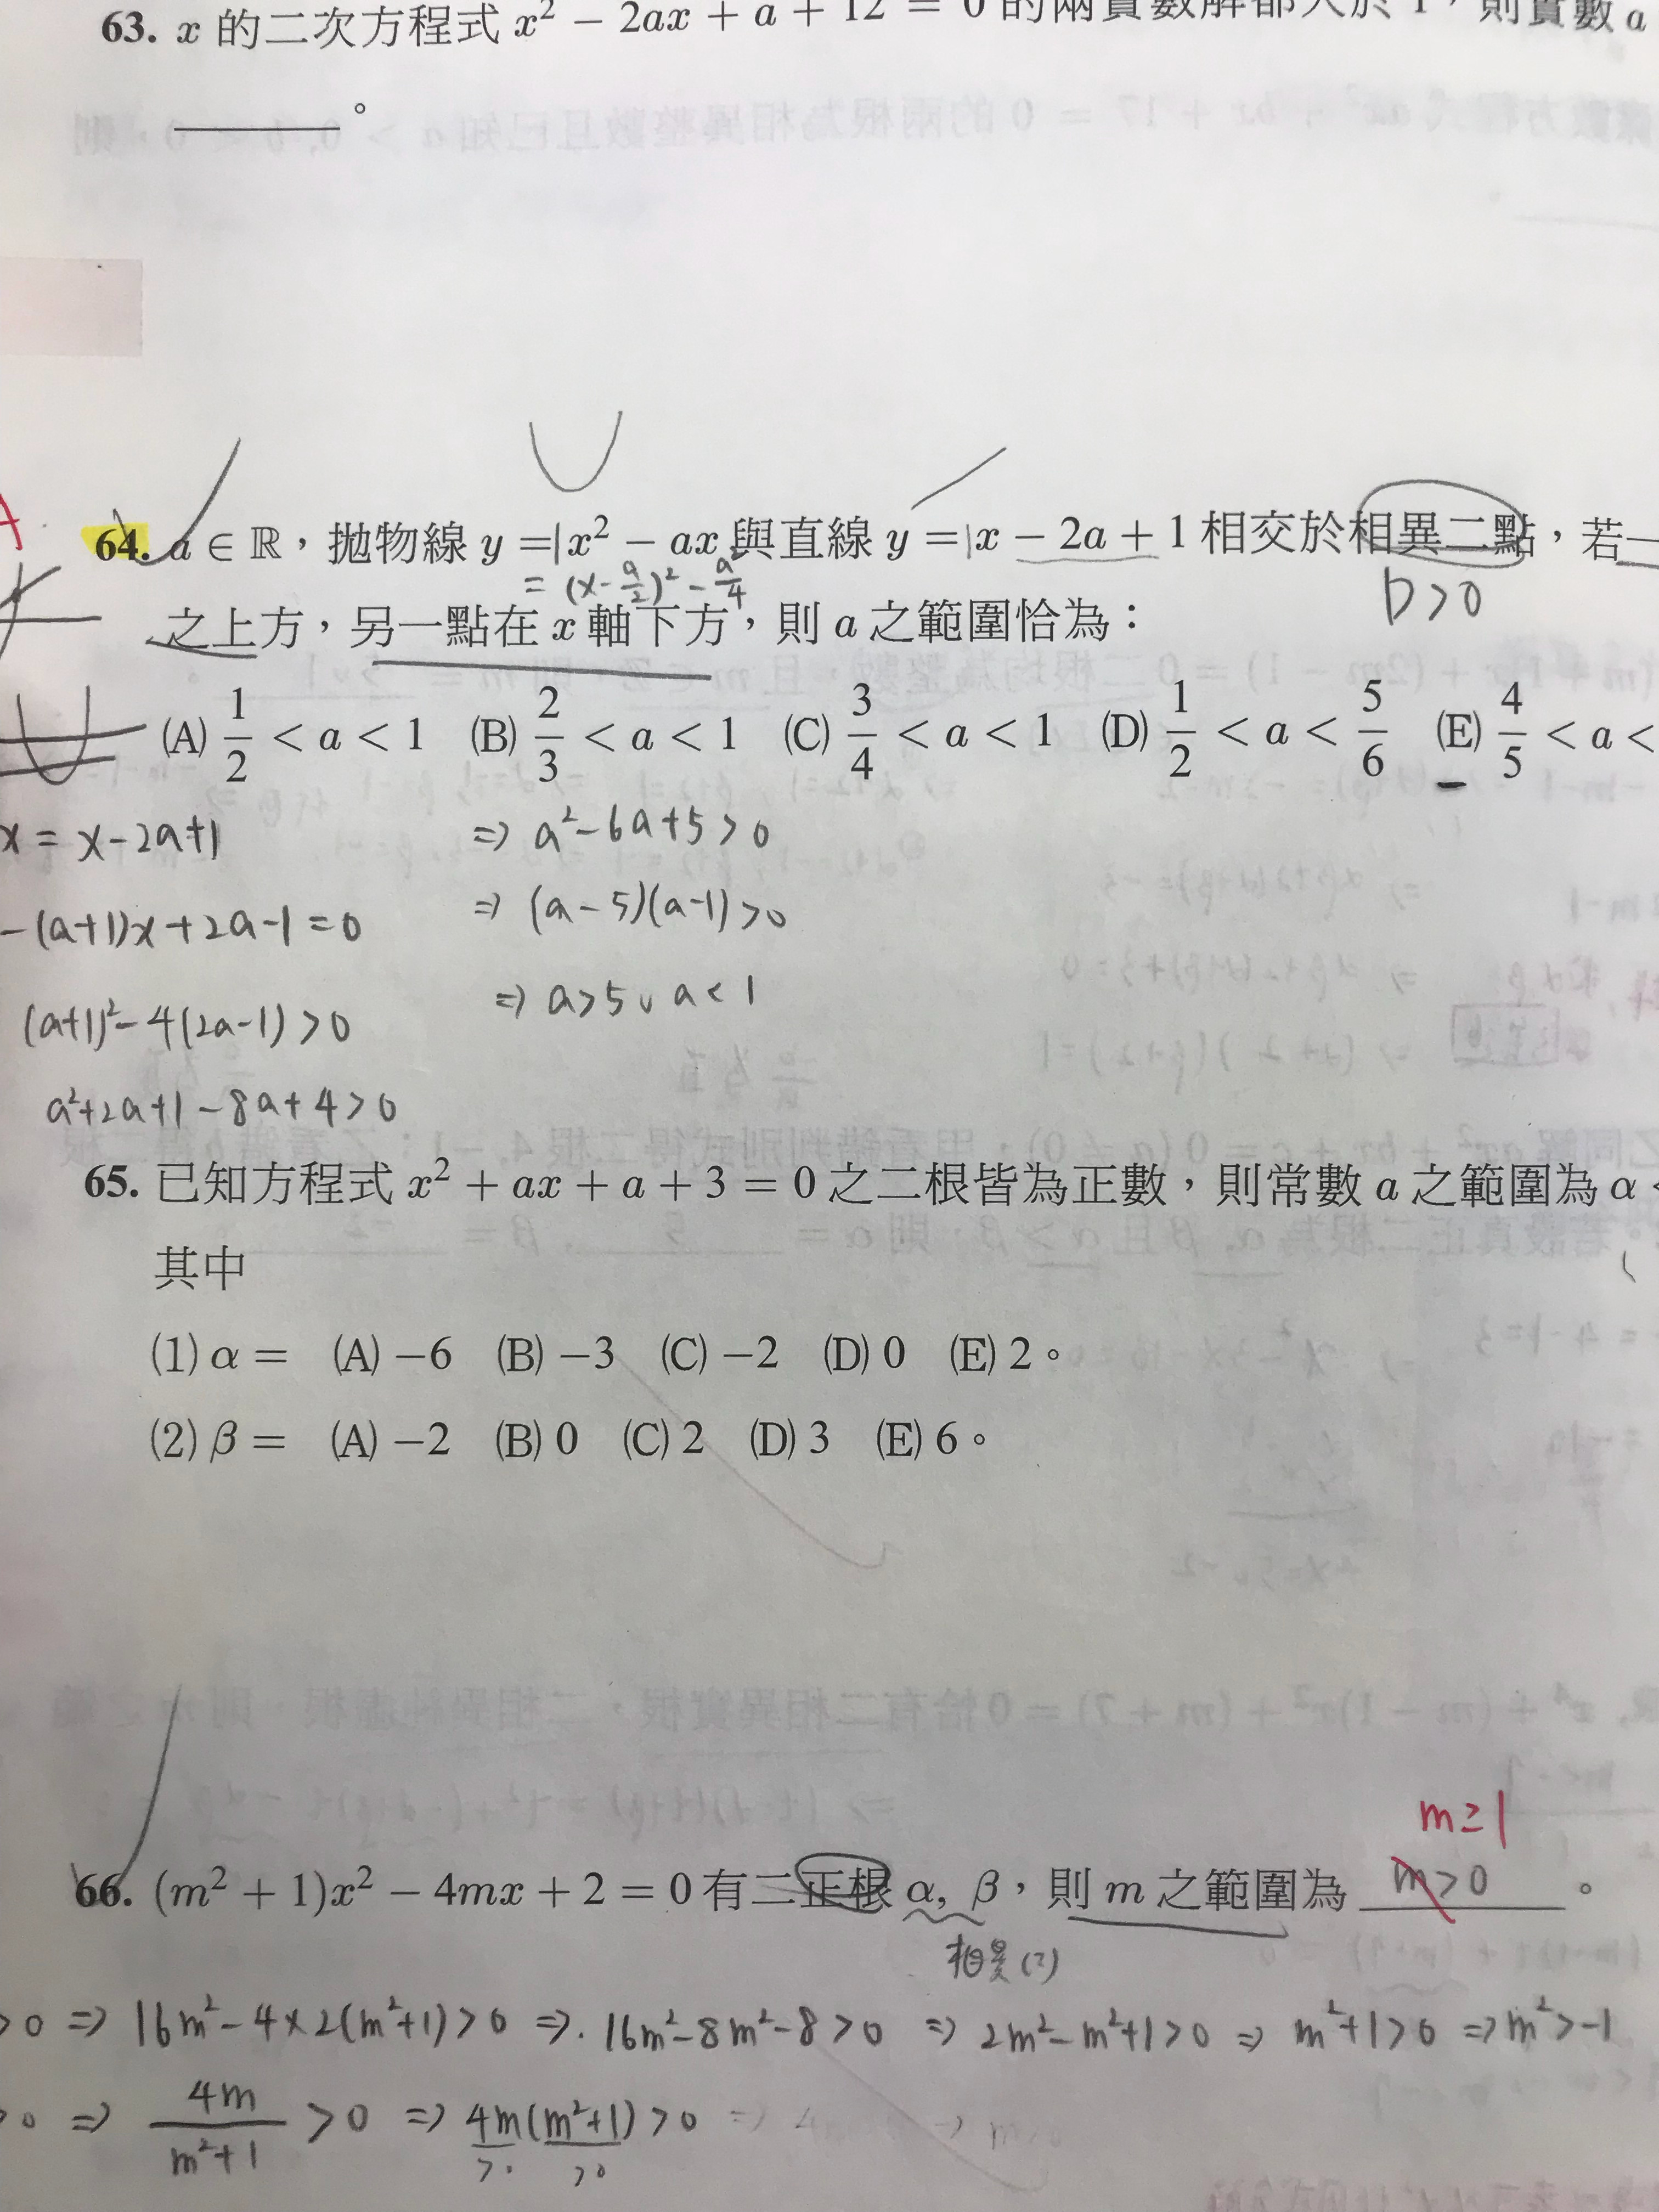 63. x 的二次方程式 x² − 2ax + a + 12 = 0 的兩實數解都大於 1,則實數 a
。
64. a ∈ ℝ,拋物線 y = x² − ax 與直線 y = x − 2a + 1 相交於相異二點,若一
= (x - a/2)² - a²/4
D > 0
之上方,另一點在 x 軸下方,則 a 之範圍恰為:
(A) 1/2 < a < 1 (B) 2/3 < a < 1 (C) 3/4 < a < 1 (D) 1/2 < a < 5/6 (E) 4/5 < a <
x = x - 2a + 1 ⇒ a² - 6a + 5 > 0
- (a+1)x + 2a - 1 = 0 ⇒ (a - 5)(a - 1) > 0
(a+1)² - 4(2a-1) > 0 ⇒ a > 5 ∪ a < 1
a² + 2a + 1 - 8a + 4 > 0
65. 已知方程式 x² + ax + a + 3 = 0 之二根皆為正數,則常數 a 之範圍為 α <
其中
(1) α = (A) −6 (B) −3 (C) −2 (D) 0 (E) 2。
(2) β = (A) −2 (B) 0 (C) 2 (D) 3 (E) 6。
m ≥ 1
66. (m² + 1)x² − 4mx + 2 = 0 有二正根 α, β,則 m 之範圍為 m > 0 。
相異(?)
> 0 ⇒ 16m² - 4 × 2(m²+1) > 0 ⇒ 16m² - 8m² - 8 > 0 ⇒ 2m² - m² + 1 > 0 ⇒ m² + 1 > 0 ⇒ m² > -1
> 0 ⇒ 4m/(m²+1) > 0 ⇒ 4m(m²+1) > 0
> 0 > 0